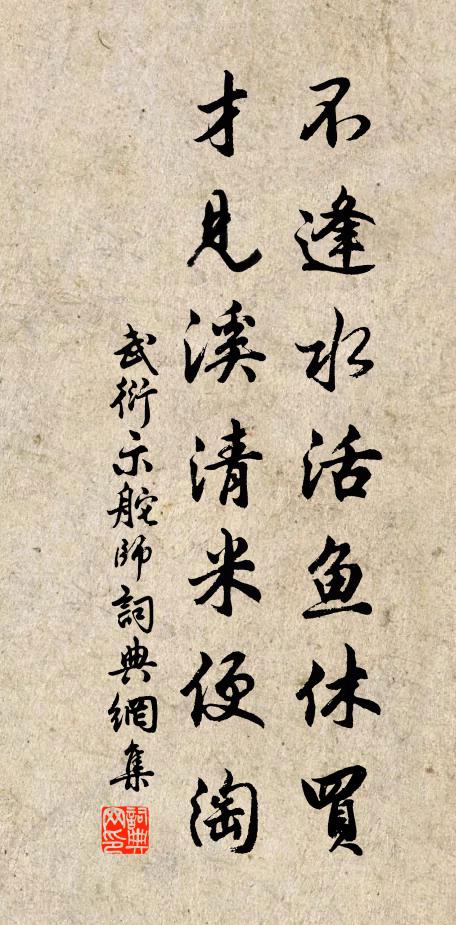 不逢水活鱼休買
才見溪清米便淘
武衍示舵師詞典網集
詞典网印